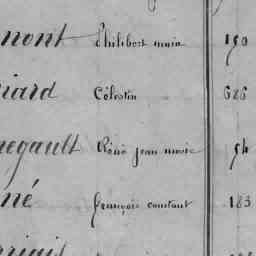 mont Philibert marie 150
iard Célestin 686
negault René jean marie 54
né françois constant 183